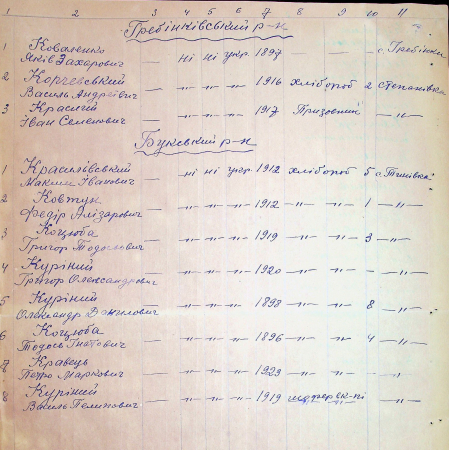 1 2 3 4 5 6 7 8 9 10 11
Гребінківський р-н
1 Коваленко
Яків Захарович — ні ні укр. 1897 — — — с. Гребінки
2 Корчевський
Василь Андрійович — -"- -"- -"- 1916 хлібороб 2 Степанівка
3 Красигій
Іван Семенович — -"- -"- -"- 1917 Призовний — -"-
Букський р-н
1 Красилівський
Максим Іванович — ні ні укр. 1912 хлібороб 5 с.
2 Ковтун
Федір Лизарович — -"- -"- -"- 1912 -"- -"- 1 -"-
3 Коцюба
Григор Тодосович — -"- -"- -"- 1919 -"- -"- 3 -"-
4 Куріний
Григор Олександрович — -"- -"- -"- 1920 -"- -"- - -"-
5 Куріний
Олександр Данилович — -"- -"- -"- 1898 -"- -"- 8 -"-
6 Коцюба
Тодось Гнатович — -"- -"- -"- 1896 -"- -"- 4 -"-
7 Кравець
Петро Маркович — -"- -"- -"- 1923 -"- -"- - -"-
8 Куріний
Василь Пелипович — -"- -"- -"- 1919 — -"-